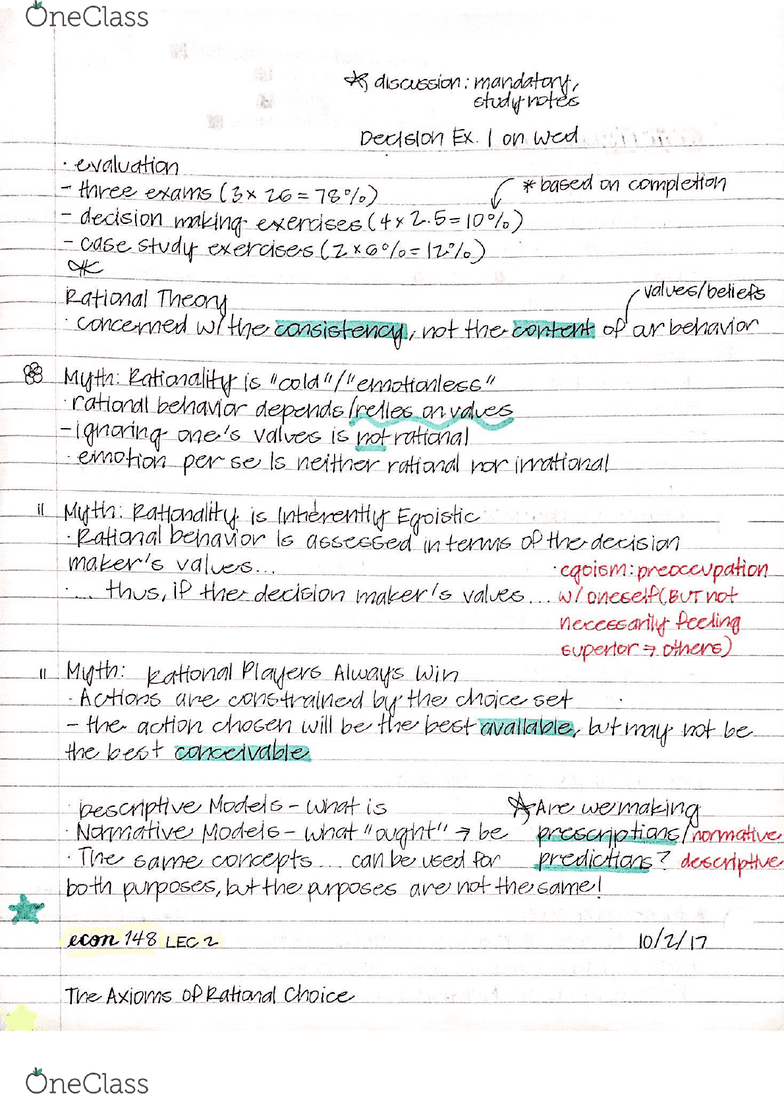 OneClass
* discussion: mandatory,
study notes
Decision Ex. 1 on Wed
· evaluation
- three exams (3 x 26 = 78%)
* based on completion
- decision making exercises (4 x 2.5 = 10%)
- case study exercises (2 x 6% = 12%)
*
values/beliefs
Rational Theory
· concerned w/ the consistency, not the content of our behavior
Myth: Rationality is "cold"/"emotionless"
· rational behavior depends/relies on values
- ignoring one's values is not rational
· emotion per se is neither rational nor irrational
11 Myth: Rationality is Inherently Egoistic
· Rational behavior is assessed in terms of the decision
maker's values...
· ... thus, if the decision maker's values...
· egoism: preoccupation
w/ oneself (BUT not
necessarily feeling
superior → others)
11 Myth: Rational Players Always Win
· Actions are constrained by the choice set
- the action chosen will be the best available, but may not be
the best conceivable
· Descriptive Models - what is
· Normative Models - what "ought" → be
· The same concepts... can be used for
both purposes, but the purposes are not the same!
* Are we making
prescriptions/normative
predictions? descriptive
econ 148 LEC 2 10/2/17
The Axioms of Rational Choice
OneClass